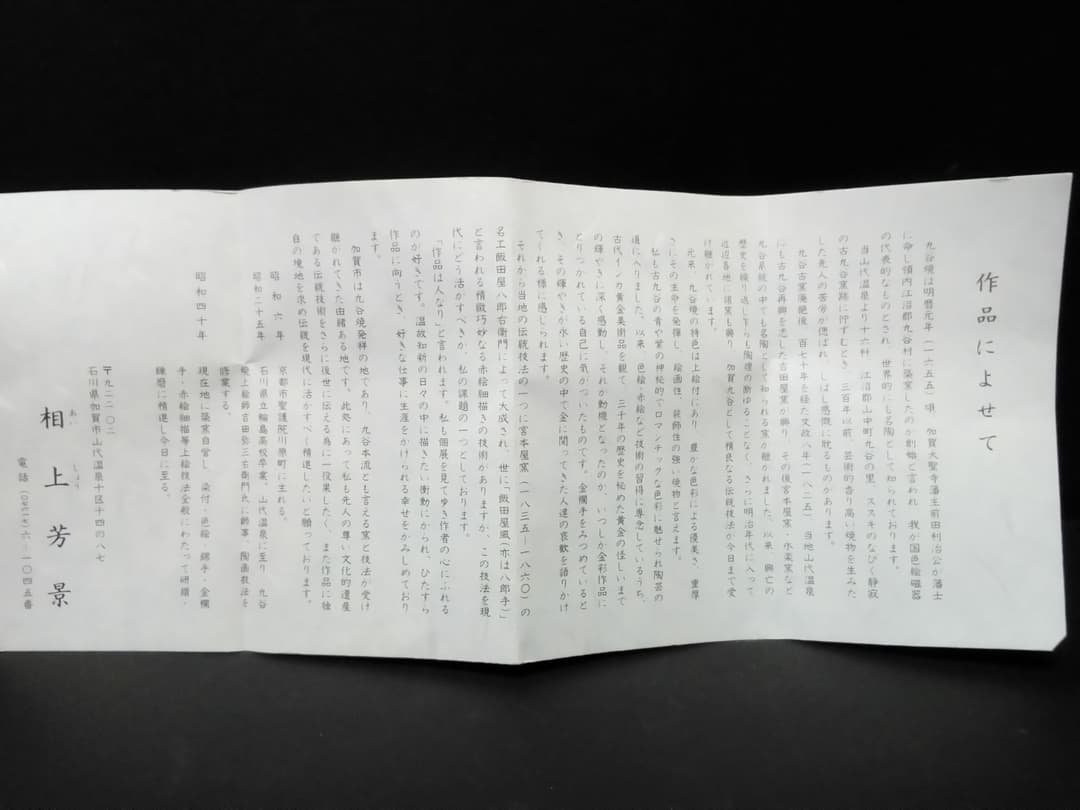 作品によせて
九谷焼は明暦元年（一六五五）頃、加賀大聖寺藩主前田利治公が藩士
に命じ領内江沼郡九谷村に築窯したのが創始と言われ、我が国色絵磁器
の代表的なものとされ、世界的にも名陶として知られております。
当山代温泉より十六粁、江沼郡山中町九谷の里、ススキのなびく静寂
の古九谷窯跡に佇ずむとき、三百年以前、芸術的香り高い焼物を生みた
した先人の苦労が偲ばれ、しばし感慨に耽るものがあります。
九谷古窯廃絶後、百七十年を経た文政八年（一八二五）当地山代温泉
にも古九谷再興を志した吉田屋窯が興り、その後宮本屋窯・永楽窯など
九谷系統の中でも名陶として知られる窯が継がれました。以来、興亡の
歴史を繰り返し乍らも陶煙の断ゆることなく、さらに明治年代に入って
近辺各地に諸窯も興り、加賀九谷として精良なる伝統技法が今日まで受
け継がれています。
元来、九谷焼の特色は上絵付にあり、豊かな色彩による優美さ、重厚
さにその生命を発揮し、絵画性、装飾性の強い焼物と言えます。
私も古九谷の青や紫の神秘的でロマンチックな色彩に魅せられ陶芸の
道に入りました。以来、色絵・赤絵など技術の習得に専念しているうち、
古代インカ黄金美術品を観て、三千年の歴史を秘めた黄金の怪しいまで
の輝やきに深く感動し、それが動機となったのか、いつしか金彩作品に
とりつかれている自己に気がついたものです。金襴手をみつめていると
き、その輝やきが永い歴史の中で金に関ってきた人達の哀歓を語りかけ
てくれる様に感じられます。
それから当地の伝統技法の一つに宮本屋窯（一八三五―一八六〇）の
名工飯田屋八郎右衛門によって大成され、世に「飯田屋風（亦は八郎手）」
と言われる精緻巧妙なる赤絵細描きの技術がありますが、この技法を現
代にどう活かすべきか、私の課題の一つとしております。
「作品は人なり」と言われます。私も個展を見て歩き作者の心にふれる
のが好きです。温故知新の日々の中に描きたい衝動にかられ、ひたすら
作品に向うとき、好きな仕事に生涯をかけられる幸せをかみしめており
ます。
加賀市は九谷焼発祥の地であり、九谷本流とも言える窯と技法が受け
継がれてきた由緒ある地です。此処にあって私も先人の尊い文化的遺産
である伝統技術をさらに後世に伝える為に一役果したく、また作品に独
自の境地を求め伝統を現代に活かすべく精進したいと願っております。
昭和六年　京都市聖護院川原町に生れる。
昭和二十五年　石川県立輪島高校卒業、山代温泉に至り、九谷
焼上絵師吉田弥三右衛門氏に師事、陶画技法を
修業する。
昭和四十年　現在地に築窯自営し、染付・色絵・錦手・金襴
手・赤絵細描等上絵技法全般にわたって研鑽・
練磨に精進し今日に至る。
〒九二二―〇二
石川県加賀市山代温泉十区十四の八七
相上芳景
あいじょう
電話（〇七六一七）六―一〇四五番